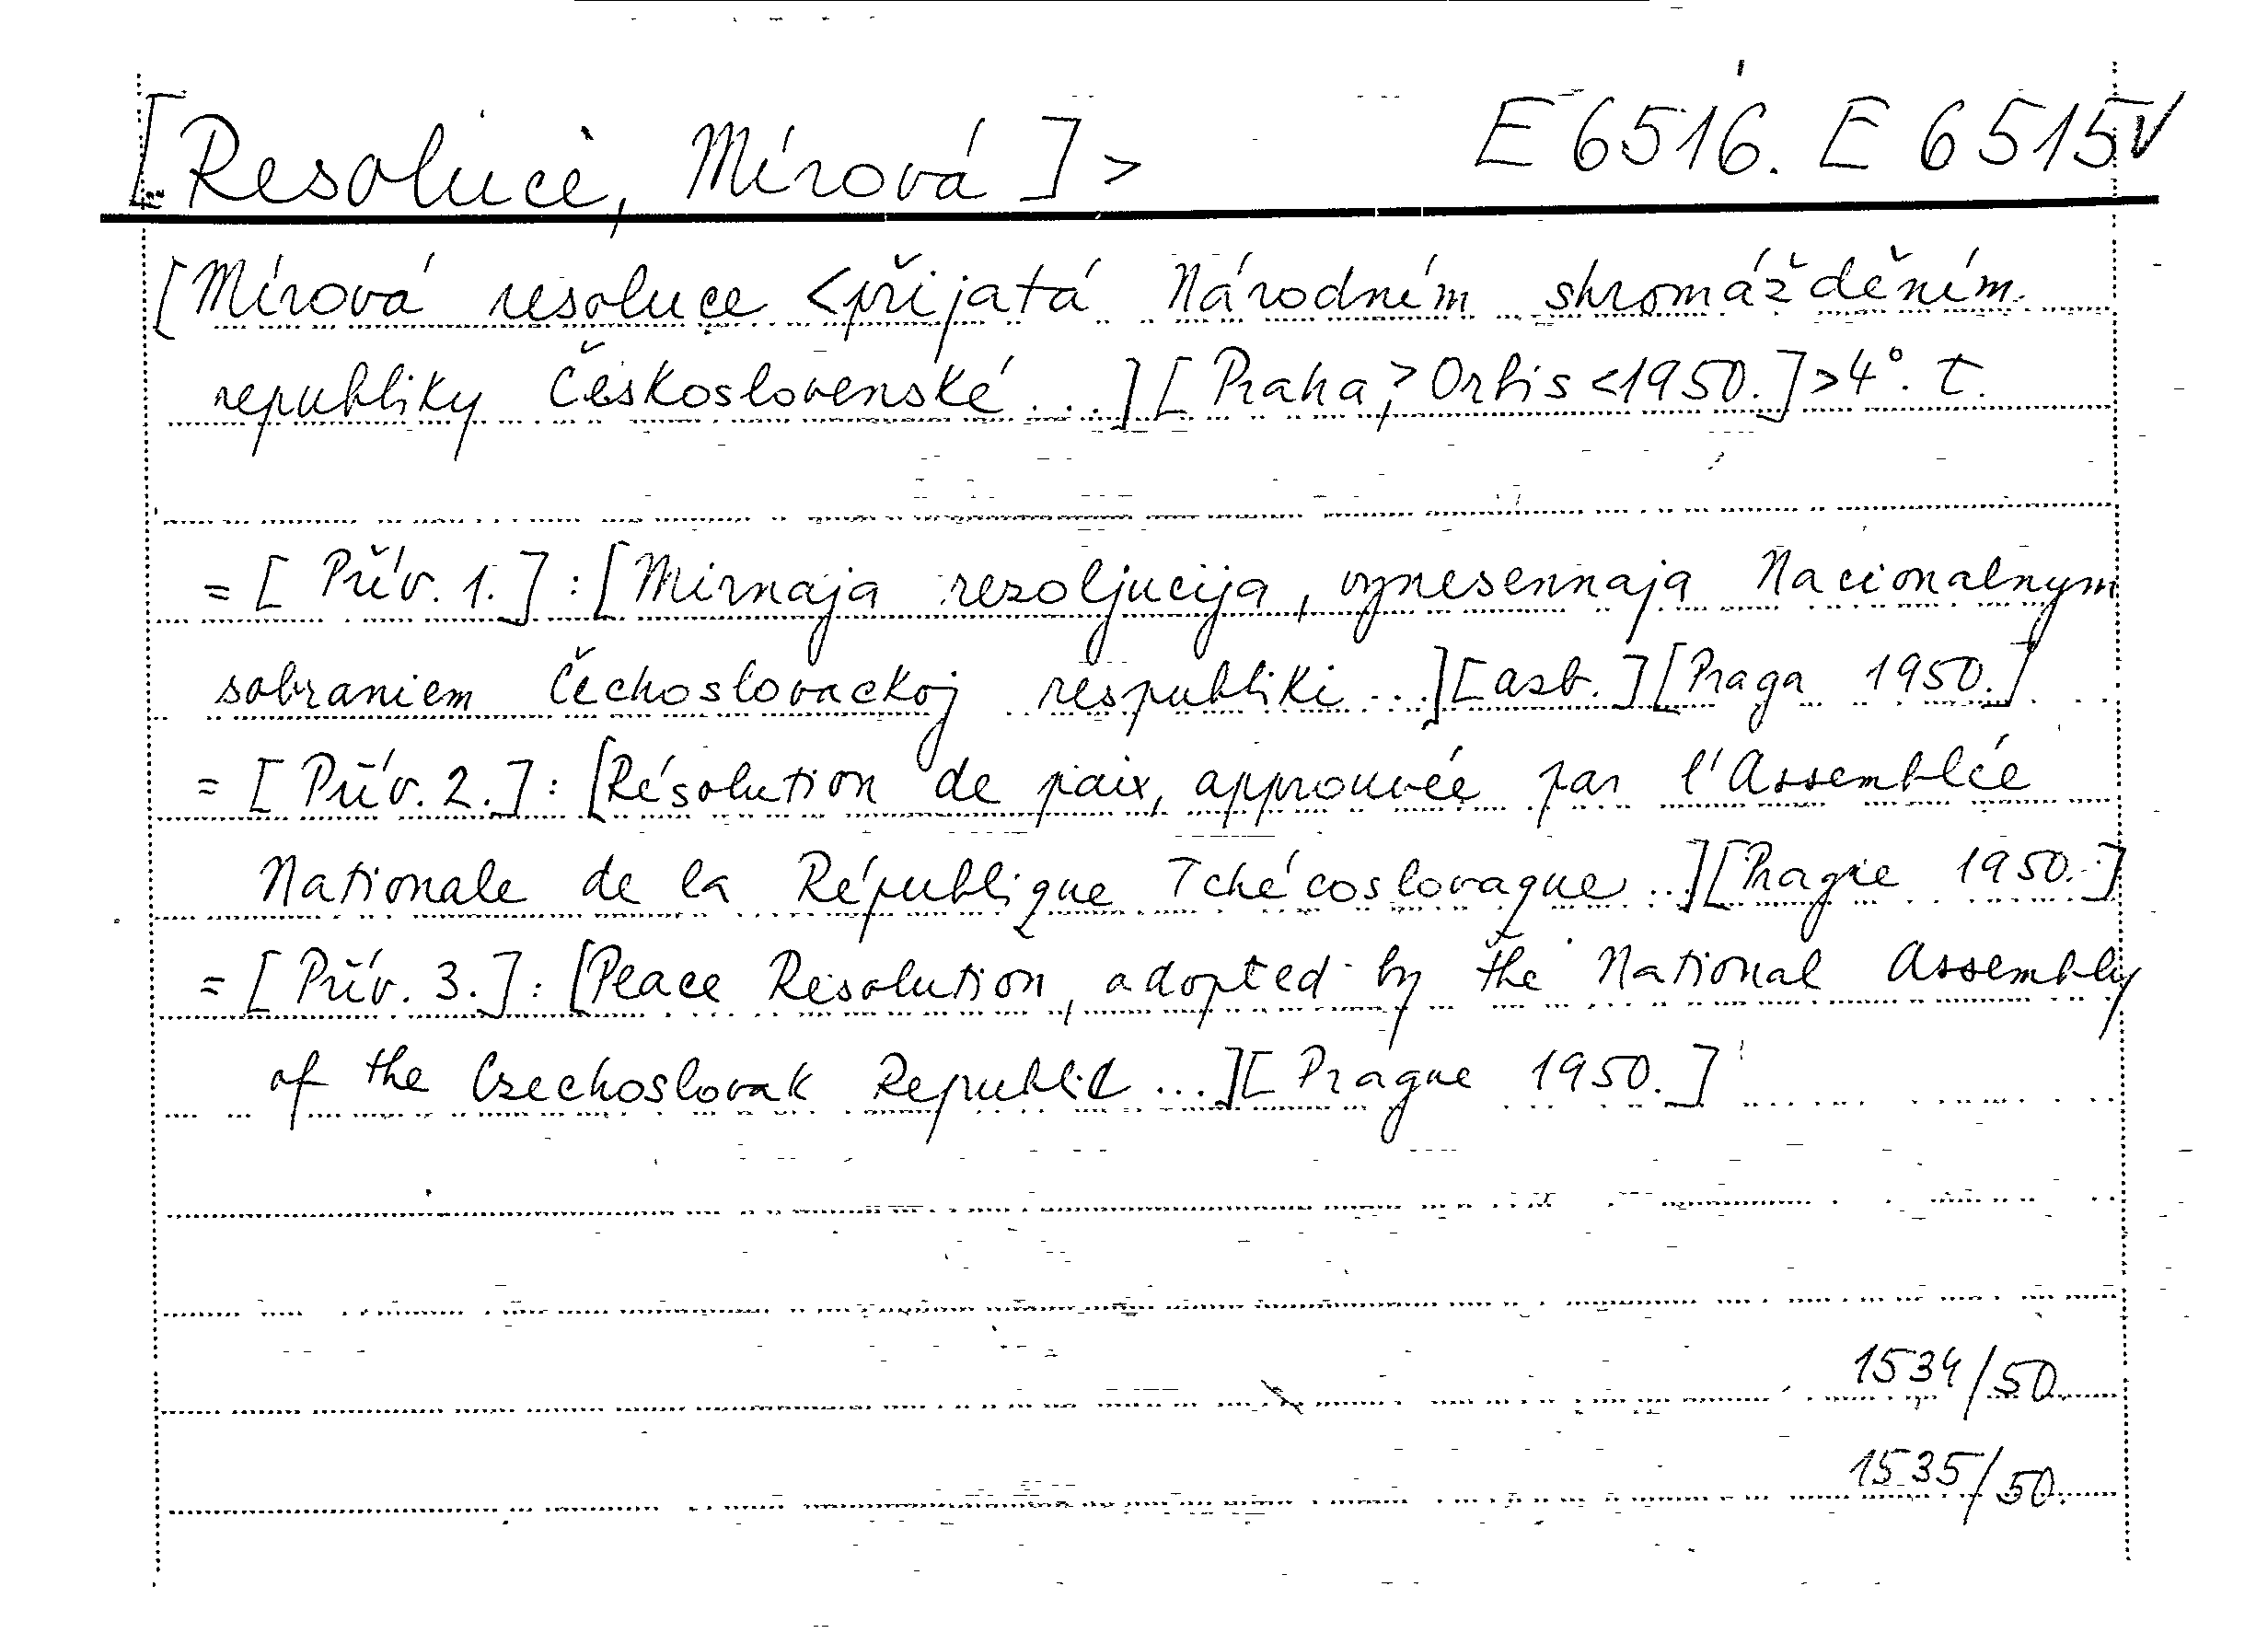 [Resoluce, Mírová]> E 6516. E 6515
[Mírová resoluce <přijatá Národním shromážděním
republiky Československé ...][Praha,> Orbis <1950.]>4°. t.
= [Přív. 1.]: [Mirnaja rezoljucija, vynesennaja Nacionalnym
sobraniem Čechoslovackoj respubliki ...][azb.][Praga 1950.]
= [Přív. 2.]: [Résolution de paix, approuvée par l'Assemblée
Nationale de la République Tchécoslovaque ...][Prague 1950.]
= [Přív. 3.]: [Peace Resolution, adopted by the National Assembly
of the Czechoslovak Republic ...][Prague 1950.]
1534/50.
1535/50.